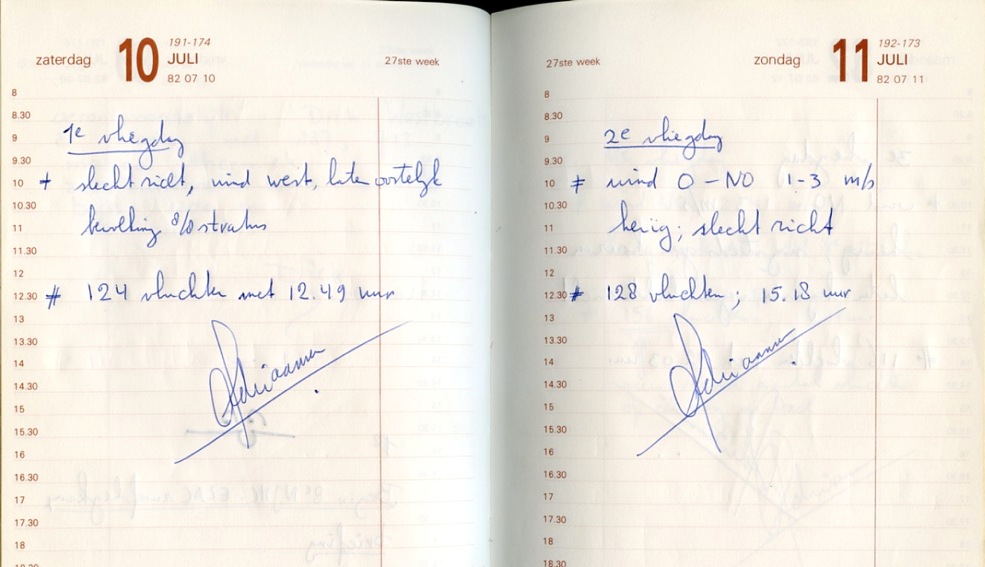 zaterdag 10 191-174
JULI
82 07 10
27ste week
8
8.30
9
9.30
10
10.30
11
11.30
12
12.30
13
13.30
14
14.30
15
15.30
16
16.30
17
17.30
18
18.30
1e vliegdag
+ slecht zicht, wind west, later oostelijk
bewolking 8/8 stratus
# 124 vluchten met 12.49 uur
Adriaansen
27ste week
zondag 11 192-173
JULI
82 07 11
8
8.30
9
9.30
10
10.30
11
11.30
12
12.30
13
13.30
14
14.30
15
15.30
16
16.30
17
17.30
18
18.30
2e vliegdag
# wind O - NO 1-3 m/s
heiig; slecht zicht
# 128 vluchten; 15.18 uur
Adriaansen